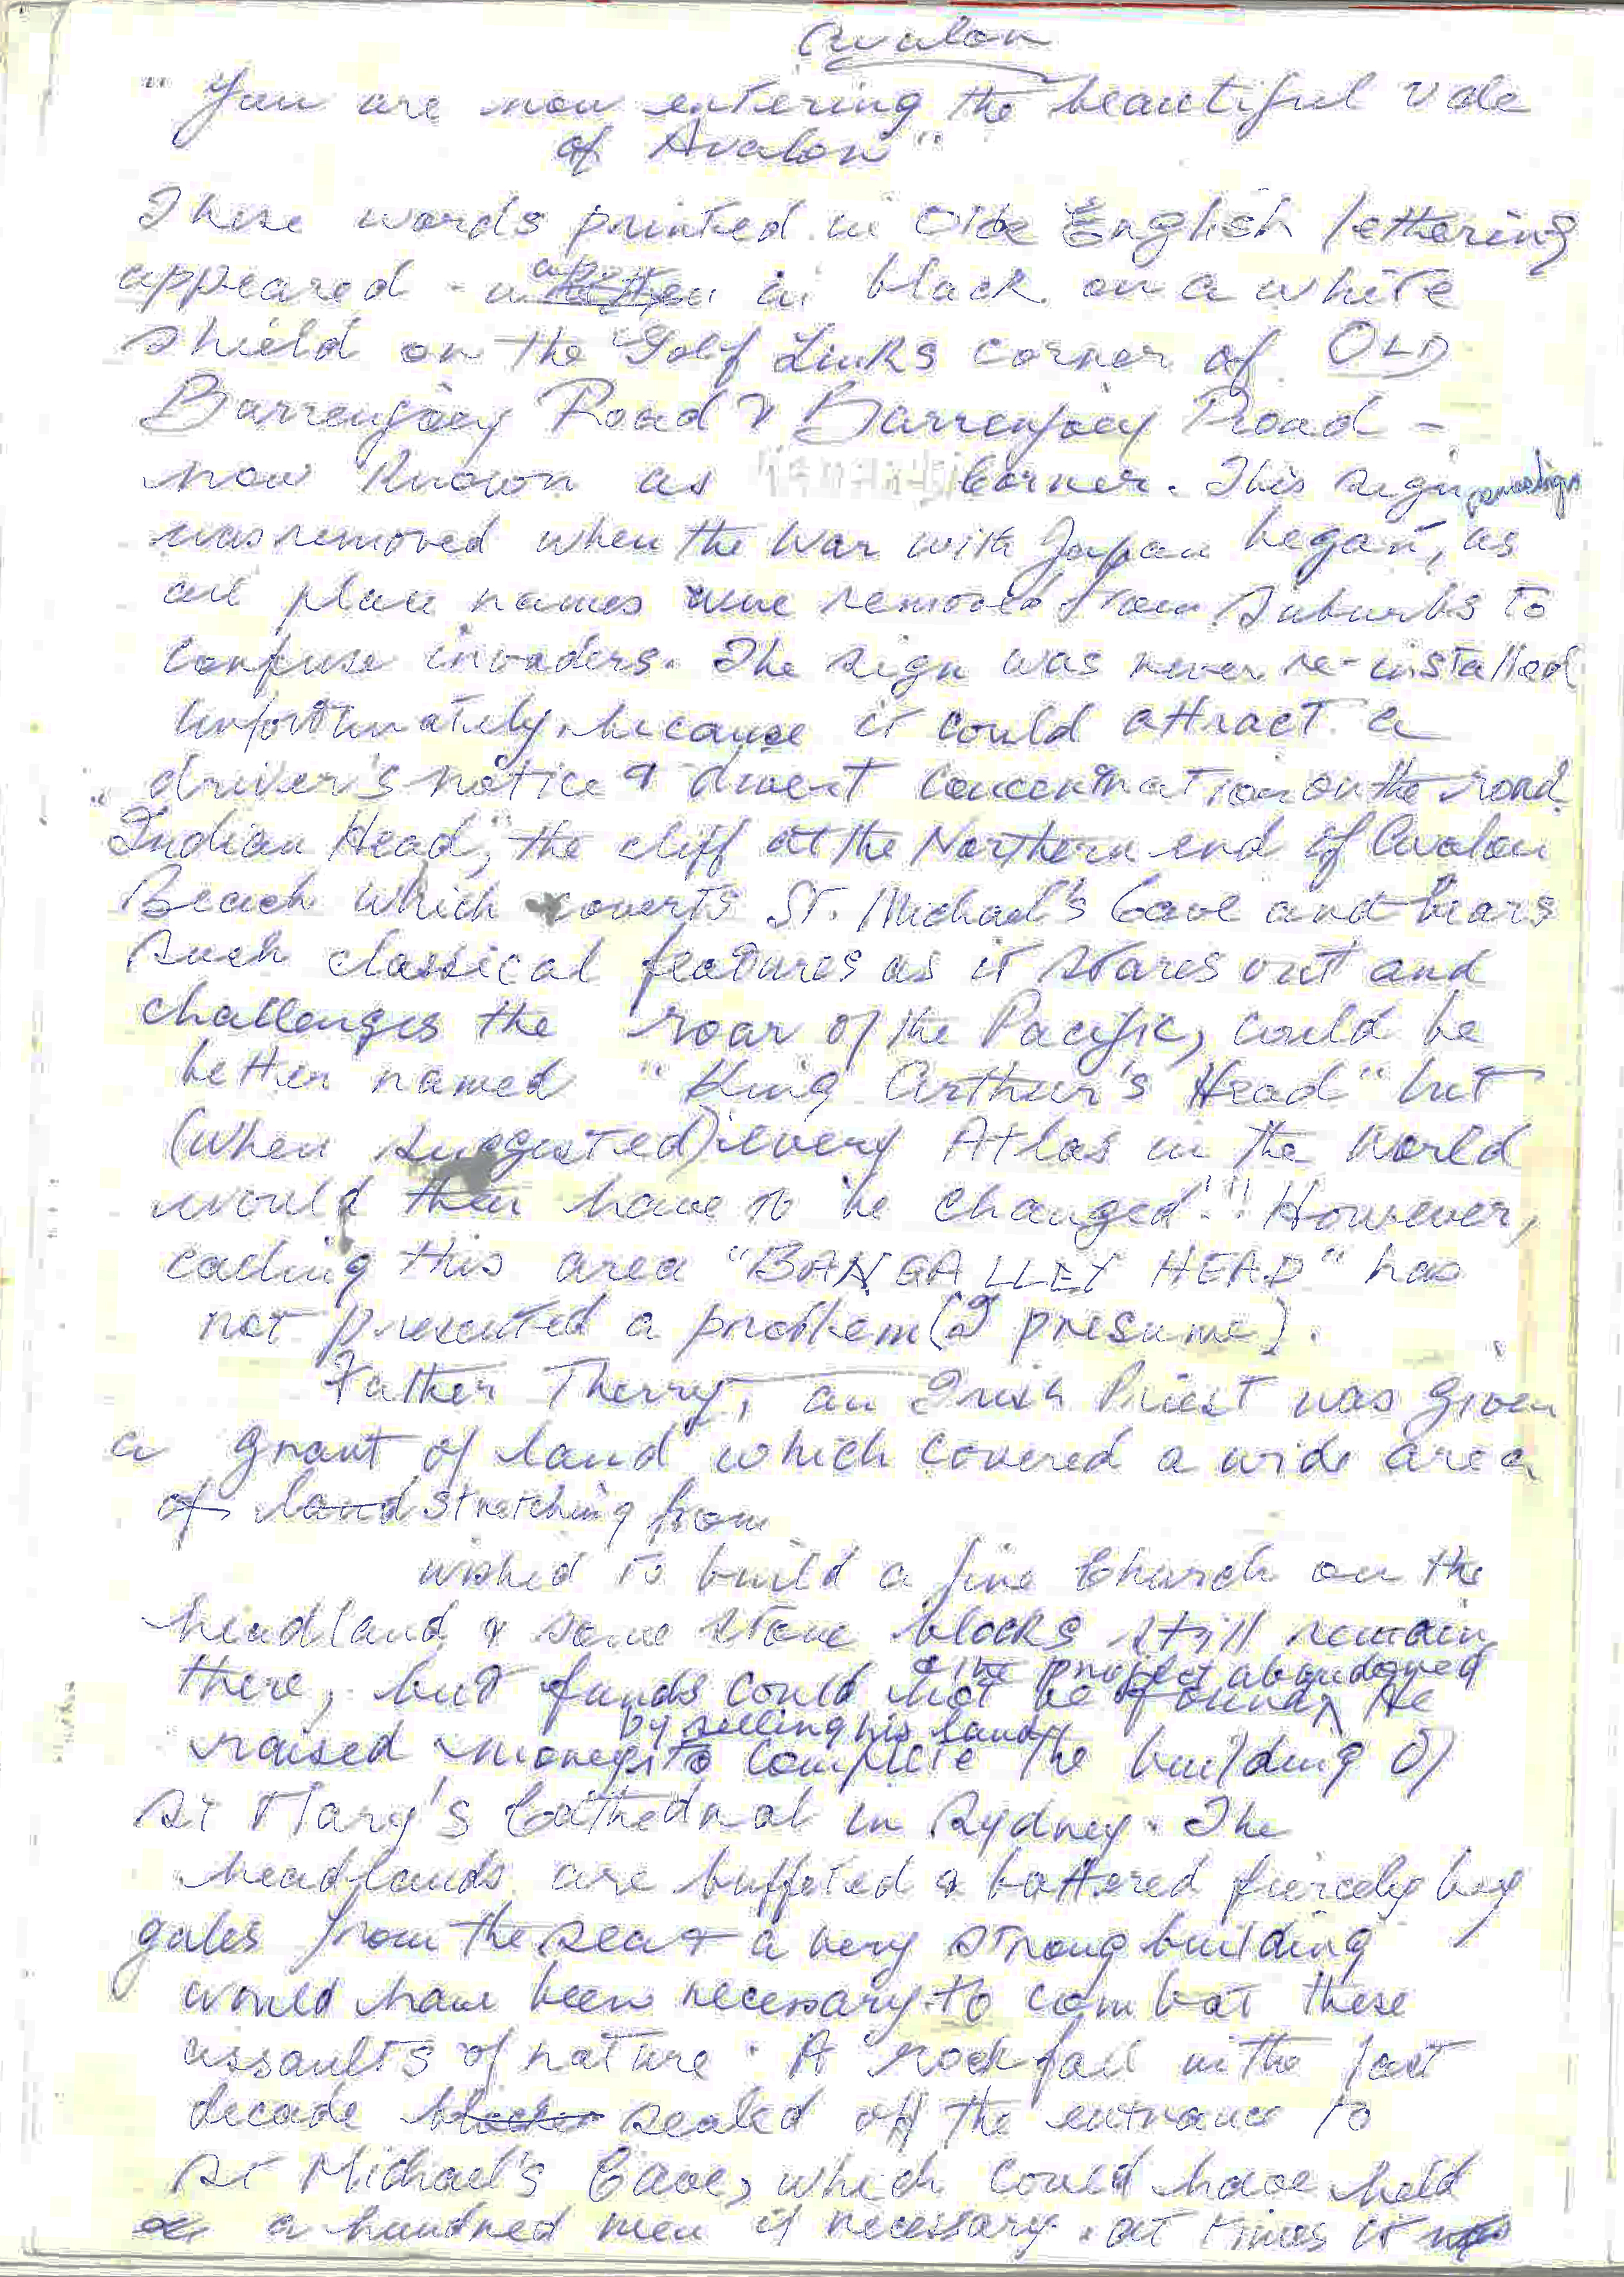 Avalon
"You are now entering the beautiful Vale
of Avalon"
These words printed in Olde English lettering
appeared in black on a white
shield on the Golf Links corner of OLD
Barrenjoey Road & Barrenjoey Road -
now known as corner. This sign
was removed when the War with Japan began, as
all place names were removed from Suburbs to
confuse invaders. The sign was never re-installed
unfortunately, because it could attract a
driver's notice & divert concentration on the road.
"Indian Head", the cliff at the Northern end of Avalon
Beach which coverts St. Michael's Cave and bears
such classical features as it stares out and
challenges the roar of the Pacific, could be
better named "King Arthur's Head" but
(when suggested) every Atlas in the World
would then have to be changed!!! However,
calling this area "BANGALLEY HEAD" has
not presented a problem (I presume).
Father Therry, an Irish Priest was given
a grant of land which covered a wide area
of land stretching from
wished to build a fine Church on the
headland & some stone blocks still remain
& the project abandoned
there, but funds could not be found. He
by selling his land
raised moneys to complete the building of
St Mary's Cathedral in Sydney. The
headlands are buffeted & battered fiercely by
gales from the sea & a very strong building
would have been necessary to combat these
assaults of nature. A rock fall in the last
decade sealed off the entrance to
St Michael's Cave, which could have held
a hundred men if necessary. at times it